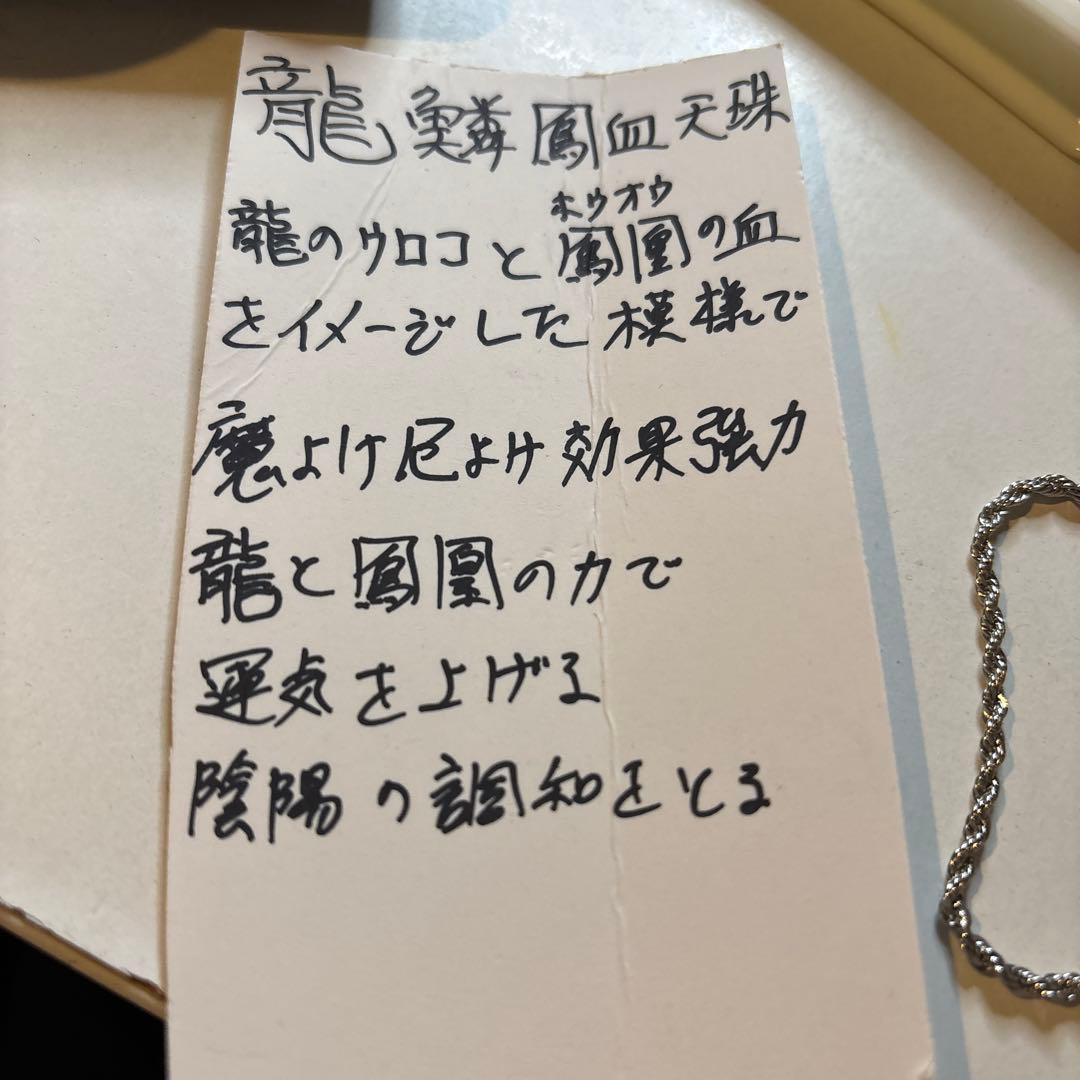 龍鱗鳳血天珠
ホウオウ
龍のウロコと鳳凰の血
をイメージした模様で
魔よけ厄よけ効果強力
龍と鳳凰の力で
運気を上げる
陰陽の調和をとる